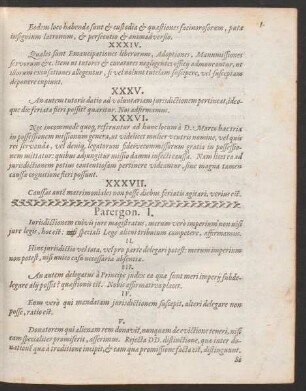 Eodem loco habenda sunt & custodia & quæstiones facinorosorum, puta
insignium latronum, & persecutio & animadversio.
XXXIV.
Quales sunt Emancipationes liberorum, Adoptiones, Manumissiones
servorum &c. Item ut tutores & curatores negligentes officij admoneantur, ut
illorum excusationes allegentur, si vel nolunt tutelam suscipere, vel susceptam
deponere cupiunt.
XXXV.
An autem tutoris datio ad voluntariam jurisdictionem pertineat, ideo-
que die feriata fieri possit? quæritur. Nos adfirmamus.
XXXVI.
Nec incommodè quoq; referuntur ad hunc locum à D. Marco hæc tria
in possessionem missionum genera, ut videlicet mulier ventris nomine, vel quis
rei servanda, vel deniq; legatorum fideivè commissorum gratia in possessio-
nem mittatur: quibus adjungitur missio damni infecti causa. Nam hæc ea ad
jurisdictionem potius contentiosam pertinere videantur, sine magna tamen
causæ cognitione fieri possunt.
XXXVII.
Caussas autē matrimoniales non posse diebus feriatis agitari, verius est.
Parergon. I.
Iurisdictionem cuivis jure magistratus: merum verò imperium non nisi
jure legis, hoc est: speciali Lege alicui tributum competere, affirmamus.
II.
Hinc jurisdictio vel tota, vel pro parte delegari potest: merum imperium
non potest, nisi multo casu necessaria absentia.
III.
An autem delegatus à Principe judex ea quæ sunt meri imperij subde-
legare alij possit? quæstionis est. Nobis affirmativa placet.
IV.
Eum verò qui mandatam jurisdictionem suscepit, alteri delegare non
posse, ratio est.
V.
Donatorem qui alienam rem donavit, nunquam de evictione teneri, nisi
eam specialiter promiserit, asserimus. Rejecta DD. distinctione, qua inter do-
nationē quæ à traditione incipit, & eam quæ promissione facta est, distingunt.